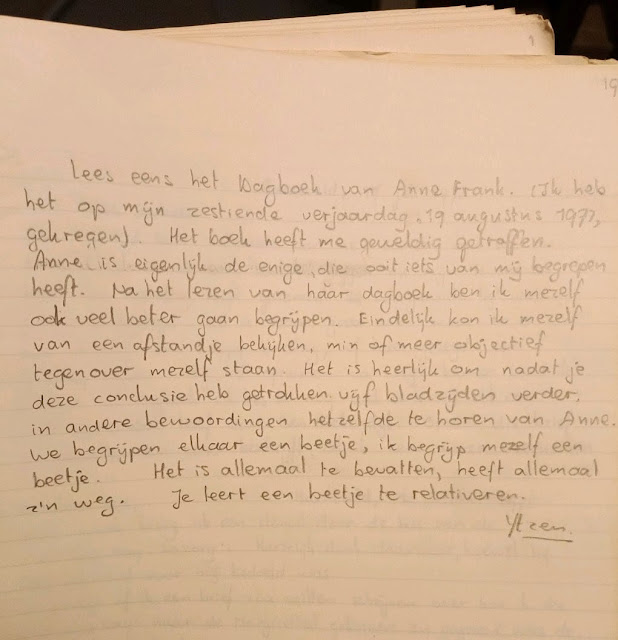 19
Lees eens het Dagboek van Anne Frank. (Ik heb
het op mijn zestiende verjaardag, 19 augustus 1977,
gekregen). Het boek heeft me geweldig getroffen.
Anne is eigenlijk de enige, die ooit iets van mij begrepen
heeft. Na het lezen van háár dagboek ben ik mezelf
ook veel beter gaan begrijpen. Eindelijk kon ik mezelf
van een afstandje bekijken, min of meer objectief
tegenover mezelf staan. Het is heerlijk om nadat je
deze conclusie heb getrokken vijf bladzijden verder,
in andere bewoordingen hetzelfde te horen van Anne.
We begrijpen elkaar een beetje, ik begrijp mezelf een
beetje. Het is allemaal te bevatten, heeft allemaal
z'n weg. Je leert een beetje te relativeren.
Ytzen.